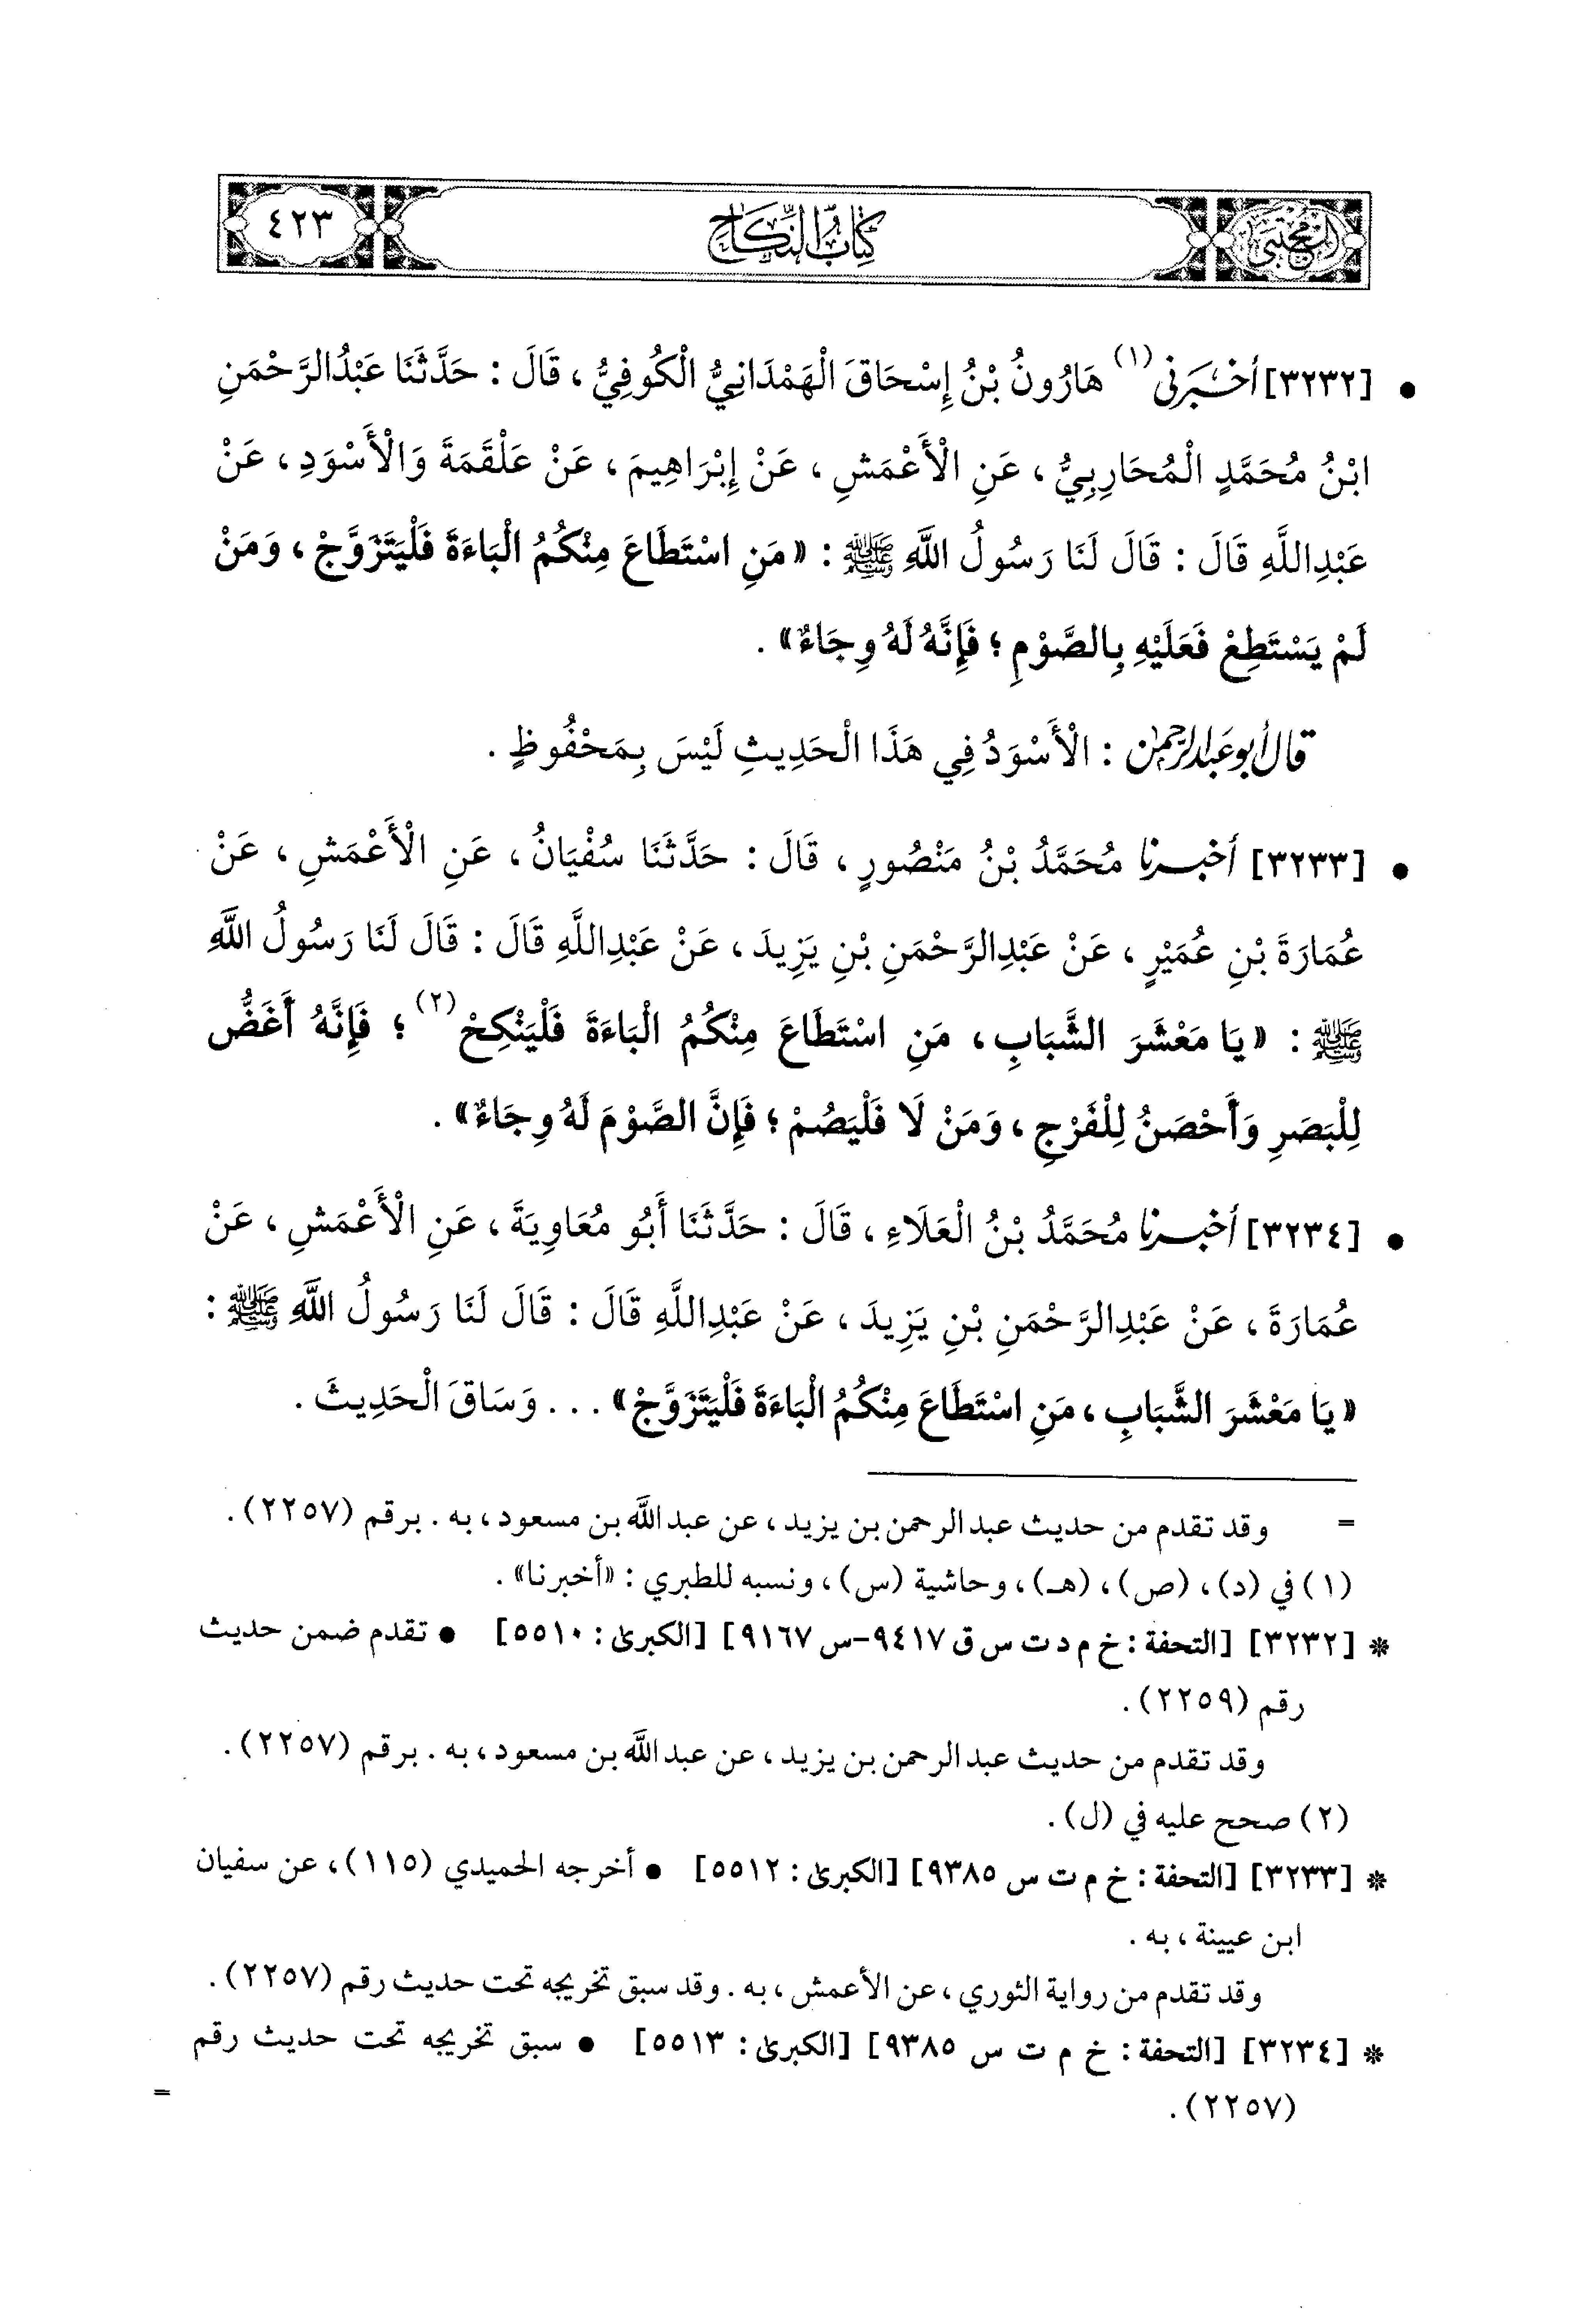 المجتبى
كتاب النكاح
٤٢٣
• [٣٢٣٢] أخبرني(١) هَارُونُ بْنُ إِسْحَاقَ الْهَمْدَانِيُّ الْكُوفِيُّ ، قَالَ : حَدَّثَنَا عَبْدُالرَّحْمَنِ
ابْنُ مُحَمَّدٍ الْمُحَارِبِيُّ ، عَنِ الْأَعْمَشِ ، عَنْ إِبْرَاهِيمَ ، عَنْ عَلْقَمَةَ وَالْأَسْوَدِ ، عَنْ
عَبْدِاللَّهِ قَالَ : قَالَ لَنَا رَسُولُ اللَّهِ ﷺ : « مَنِ اسْتَطَاعَ مِنْكُمُ الْبَاءَةَ فَلْيَتَزَوَّجْ ، وَمَنْ
لَمْ يَسْتَطِعْ فَعَلَيْهِ بِالصَّوْمِ ؛ فَإِنَّهُ لَهُ وِجَاءٌ» .
قال أبو عبد الرحمن : الْأَسْوَدُ فِي هَذَا الْحَدِيثِ لَيْسَ بِمَحْفُوظٍ .
• [٣٢٣٣] أخبرنا مُحَمَّدُ بْنُ مَنْصُورٍ ، قَالَ : حَدَّثَنَا سُفْيَانُ ، عَنِ الْأَعْمَشِ ، عَنْ
عُمَارَةَ بْنِ عُمَيْرٍ ، عَنْ عَبْدِالرَّحْمَنِ بْنِ يَزِيدَ ، عَنْ عَبْدِاللَّهِ قَالَ : قَالَ لَنَا رَسُولُ اللَّهِ
ﷺ : « يَا مَعْشَرَ الشَّبَابِ ، مَنِ اسْتَطَاعَ مِنْكُمُ الْبَاءَةَ فَلْيَنْكِحْ(٢) ؛ فَإِنَّهُ أَغَضُّ
لِلْبَصَرِ وَأَحْصَنُ لِلْفَرْجِ ، وَمَنْ لَا فَلْيَصُمْ ؛ فَإِنَّ الصَّوْمَ لَهُ وِجَاءٌ» .
• [٣٢٣٤] أخبرنا مُحَمَّدُ بْنُ الْعَلَاءِ ، قَالَ : حَدَّثَنَا أَبُو مُعَاوِيَةَ ، عَنِ الْأَعْمَشِ ، عَنْ
عُمَارَةَ ، عَنْ عَبْدِالرَّحْمَنِ بْنِ يَزِيدَ ، عَنْ عَبْدِاللَّهِ قَالَ : قَالَ لَنَا رَسُولُ اللَّهِ ﷺ :
« يَا مَعْشَرَ الشَّبَابِ ، مَنِ اسْتَطَاعَ مِنْكُمُ الْبَاءَةَ فَلْيَتَزَوَّجْ» . . . وَسَاقَ الْحَدِيثَ .
= وقد تقدم من حديث عبد الرحمن بن يزيد ، عن عبد اللَّه بن مسعود ، به . برقم (٢٢٥٧) .
(١) في (د) ، (ص) ، (هـ) ، وحاشية (س) ، ونسبه للطبري : «أخبرنا» .
* [٣٢٣٢] [التحفة : خ م د ت س ق ٩٤١٧-س ٩١٦٧] [الكبرى : ٥٥١٠] • تقدم ضمن حديث
رقم (٢٢٥٩) .
وقد تقدم من حديث عبد الرحمن بن يزيد ، عن عبد اللَّه بن مسعود ، به . برقم (٢٢٥٧) .
(٢) صحح عليه في (ل) .
* [٣٢٣٣] [التحفة : خ م ت س ٩٣٨٥] [الكبرى : ٥٥١٢] • أخرجه الحميدي (١١٥) ، عن سفيان
ابن عيينة ، به .
وقد تقدم من رواية الثوري ، عن الأعمش ، به . وقد سبق تخريجه تحت حديث رقم (٢٢٥٧) .
* [٣٢٣٤] [التحفة : خ م ت س ٩٣٨٥] [الكبرى : ٥٥١٣] • سبق تخريجه تحت حديث رقم
(٢٢٥٧) .
=